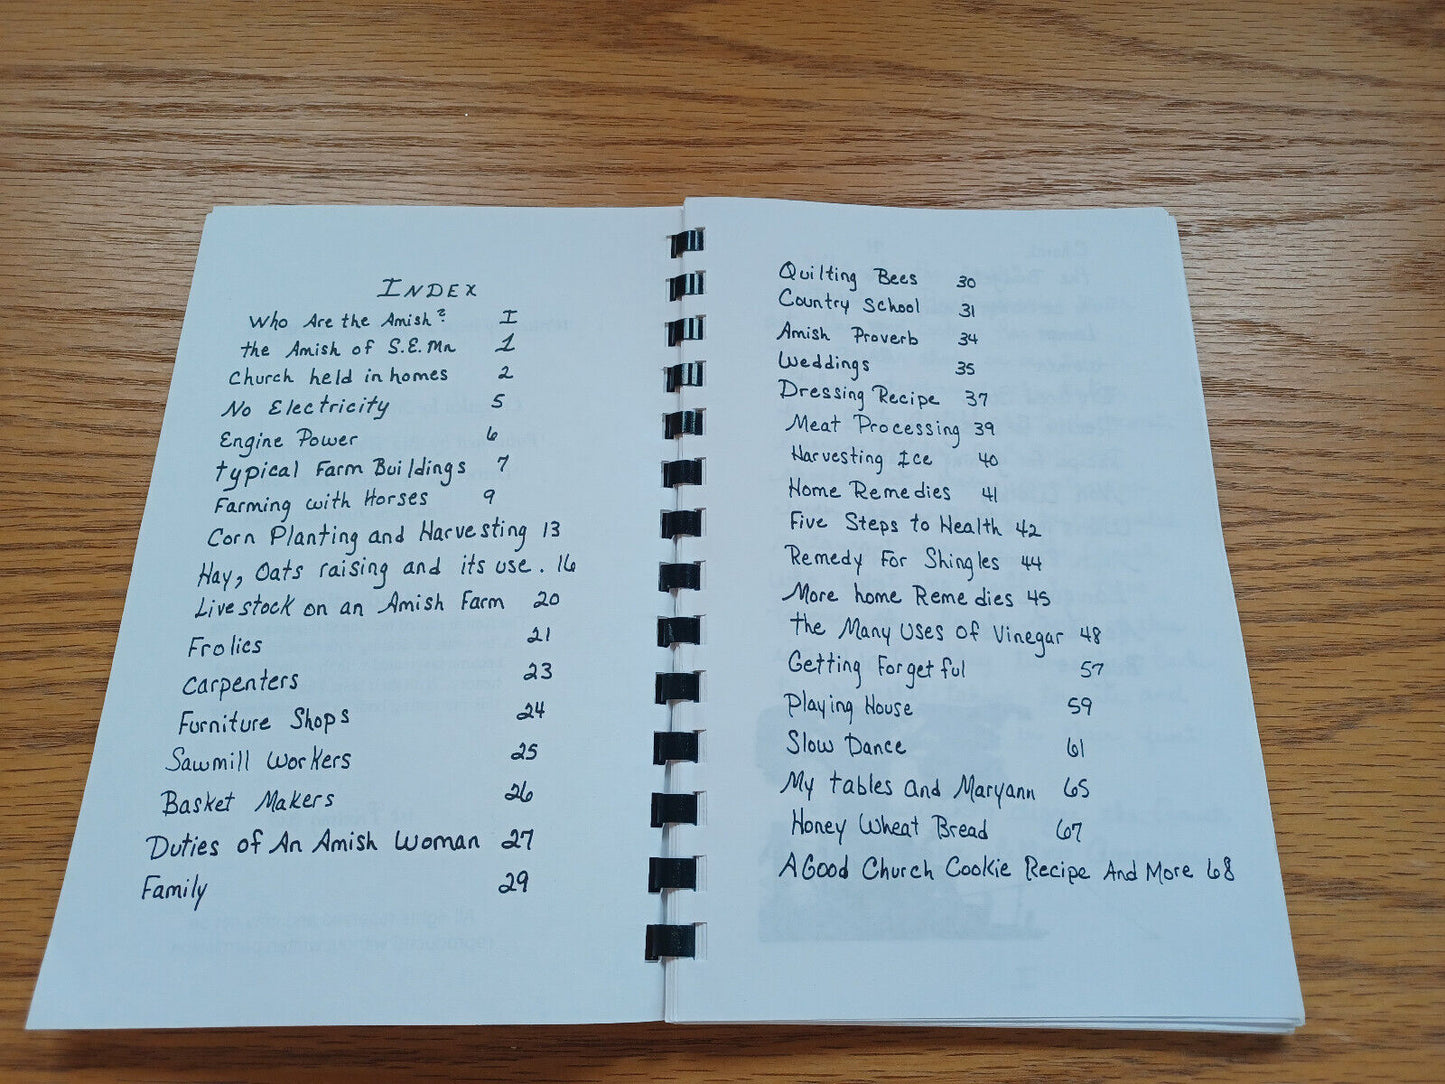 INDEX
Who Are the Amish? I
the Amish of S.E. Mn 1
Church held in homes 2
No Electricity 5
Engine Power 6
typical Farm Buildings 7
Farming with Horses 9
Corn Planting and Harvesting 13
Hay, Oats raising and its use. 16
Livestock on an Amish Farm 20
Frolics 21
Carpenters 23
Furniture Shops 24
Sawmill Workers 25
Basket Makers 26
Duties of An Amish Woman 27
Family 29
Quilting Bees 30
Country School 31
Amish Proverb 34
Weddings 35
Dressing Recipe 37
Meat Processing 39
Harvesting Ice 40
Home Remedies 41
Five Steps to Health 42
Remedy For Shingles 44
More home Remedies 45
the Many Uses of Vinegar 48
Getting Forgetful 57
Playing House 59
Slow Dance 61
My tables and Maryann 65
Honey Wheat Bread 67
A Good Church Cookie Recipe And More 68